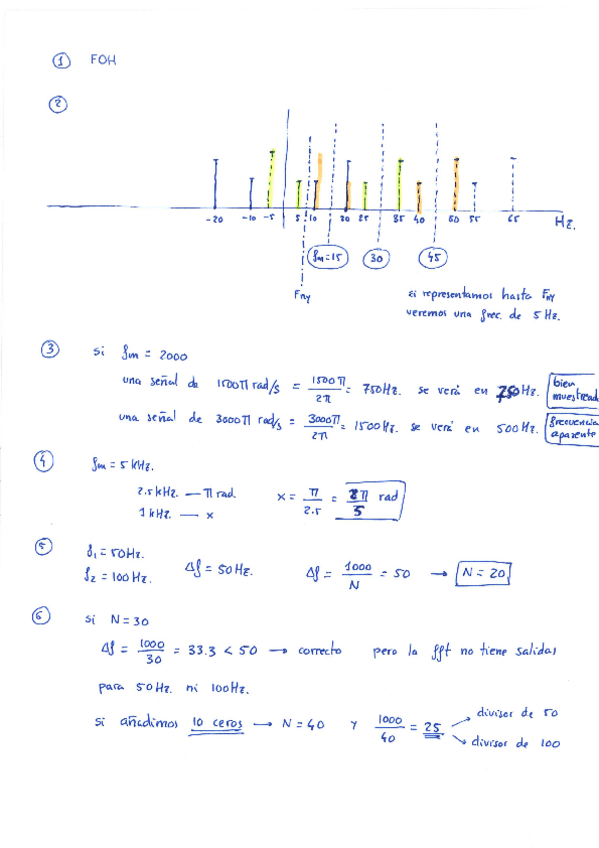 ① FOH
②
-20 -10 -5 5 10 20 25 35 40 50 55 65 Hz.
fm=15 30 45
FNY
si representamos hasta FNY
veremos una frec. de 5 Hz.
③ si fm = 2000
una señal de 1500π rad/s = 1500π/2π = 750Hz. se verá en 750Hz. bien muestreada
una señal de 3000π rad/s = 3000π/2π = 1500Hz. se verá en 500Hz. frecuencia aparente
④ fm = 5 kHz.
2.5 kHz. — π rad. x = π/2.5 = 2π/5 rad
1 kHz. — x
⑤ f1 = 50Hz.
f2 = 100Hz. Δf = 50Hz. Δf = 1000/N = 50 → N = 20
⑥ si N = 30
Δf = 1000/30 = 33.3 < 50 → correcto pero la fft no tiene salidas
para 50Hz. ni 100Hz.
si añadimos 10 ceros → N = 40 y 1000/40 = 25 divisor de 50
divisor de 100